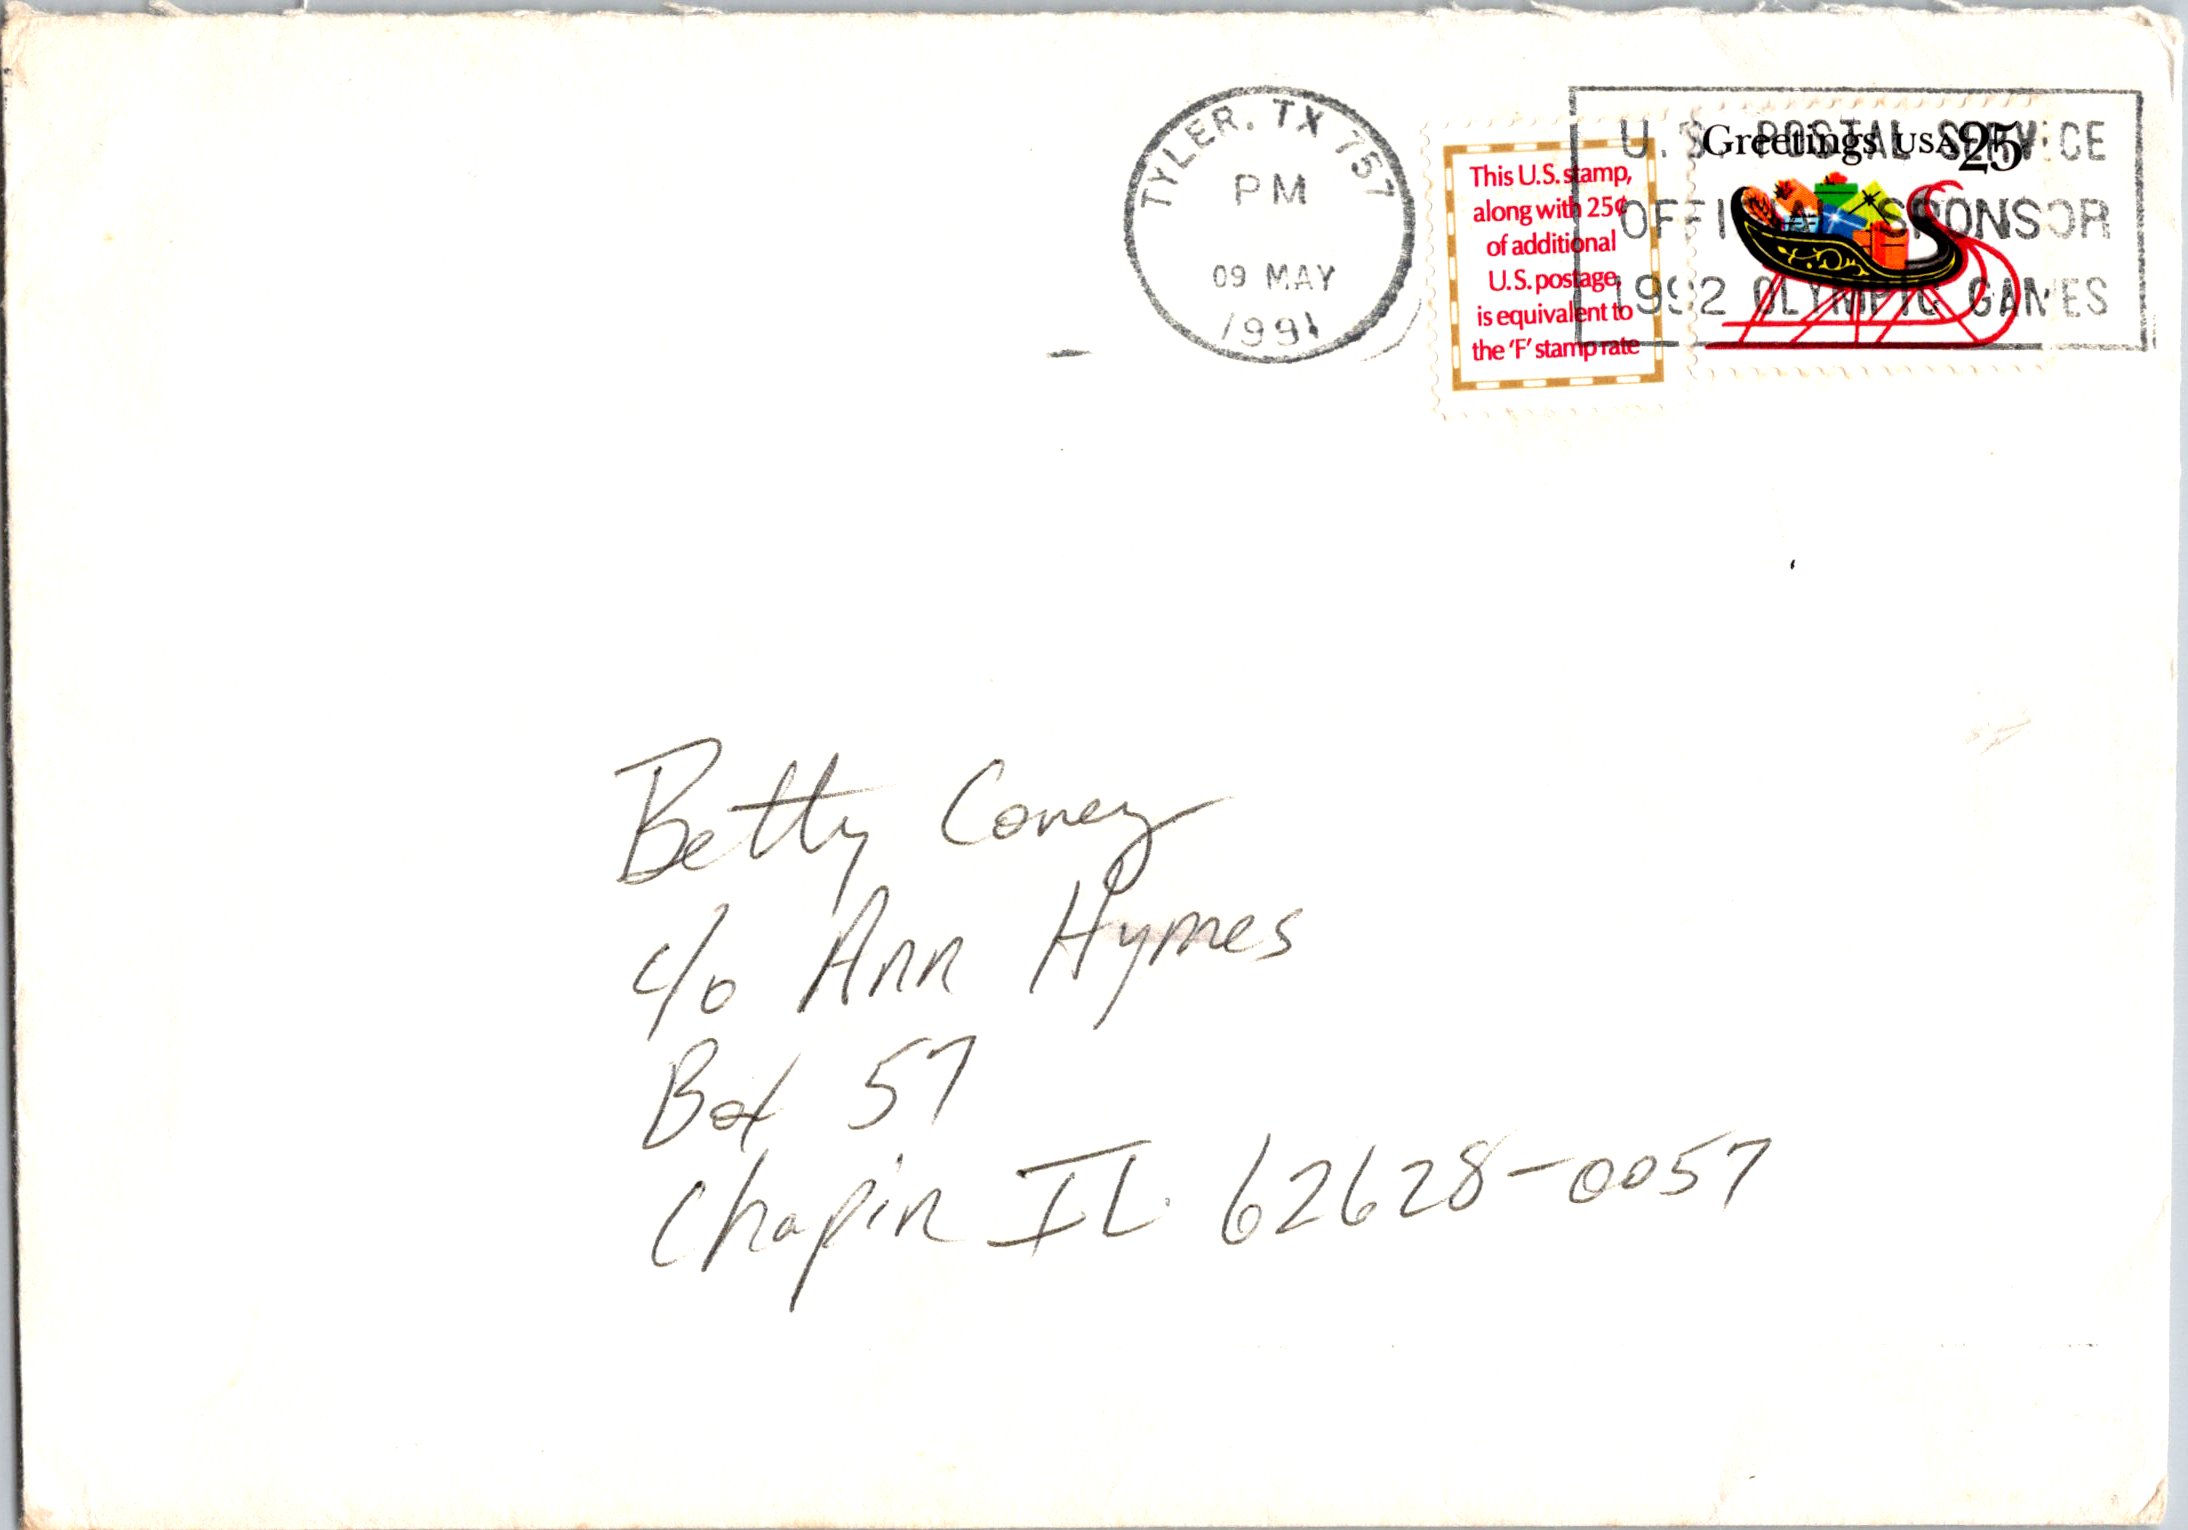 TYLER, TX 757
PM
09 MAY
1991
This U.S. stamp,
along with 25¢
of additional
U.S. postage,
is equivalent to
the 'F' stamp rate
Greetings USA 25
U.S. POSTAL SERVICE
OFFICIAL SPONSOR
1992 OLYMPIC GAMES
Betty Coney
c/o Ann Hymes
Box 57
Chapin IL 62628-0057